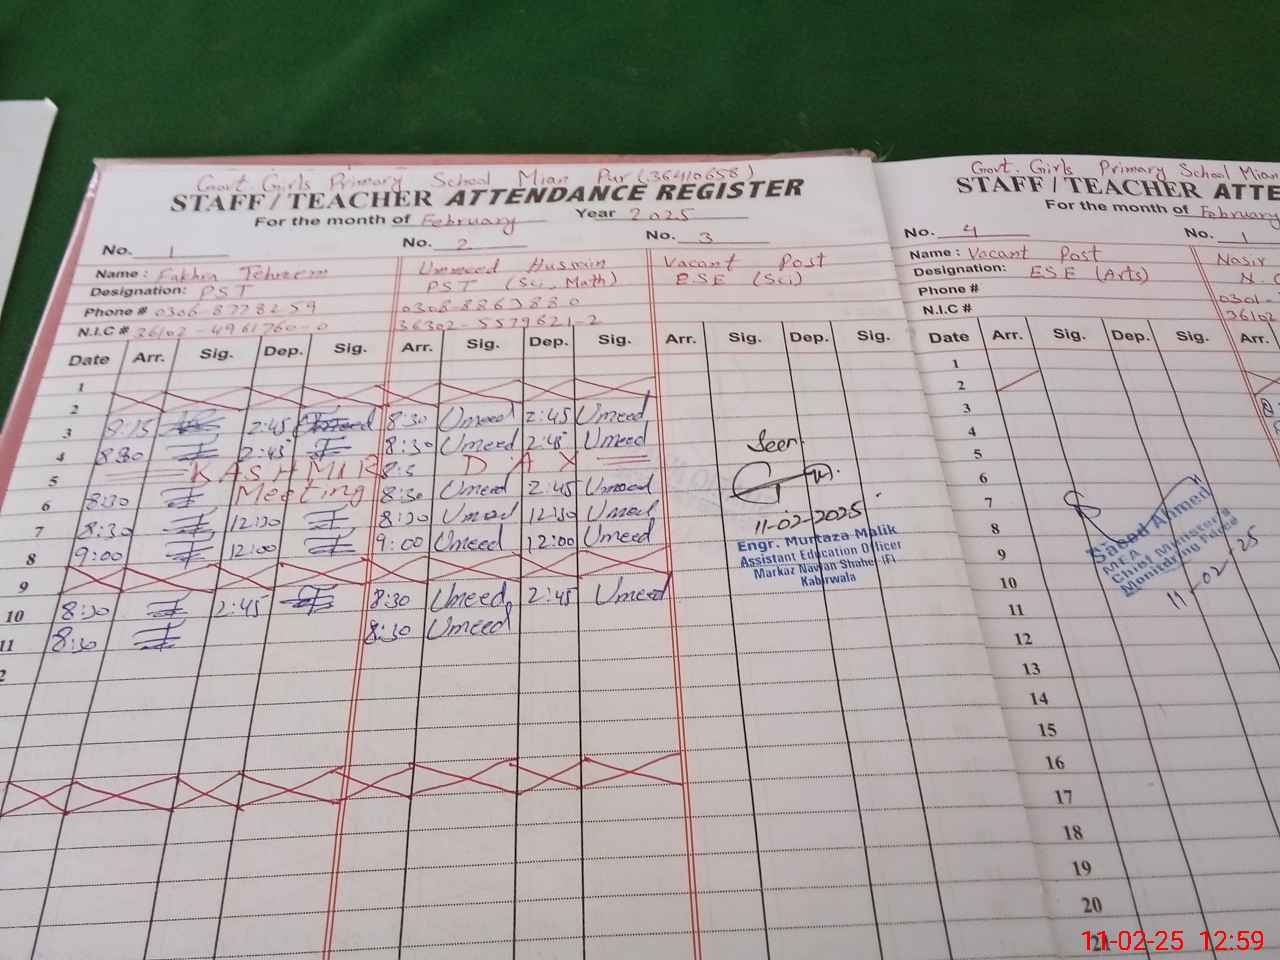 Govt. Girls Primary School Mian Pur (36410658)
STAFF/TEACHER ATTENDANCE REGISTER
For the month of February Year 2025
No. 1 No. 2 No. 3
Name: Fakhra Tehreem Umeed Hussain Vacant Post
Designation: PST PST (Sci, Math) ESE (Sci)
Phone # 0306-8778259 0308-8863880
N.I.C # 36102-4961760-0 36302-5579621-2
Date Arr. Sig. Dep. Sig. Arr. Sig. Dep. Sig. Arr. Sig. Dep. Sig.
1
2
3 8:15 2:45 8:30 Umeed 2:45 Umeed
4 8:30 2:45 8:30 Umeed 2:45 Umeed
5 KASHMIR DAY
6 8:30 Meeting 8:30 Umeed 2:45 Umeed
7 8:30 12:30 8:30 Umeed 12:30 Umeed
8 9:00 12:00 9:00 Umeed 12:00 Umeed
9
10 8:30 2:45 8:30 Umeed 2:45 Umeed
11 8:30 8:30 Umeed
2
Seen
11-02-2025
Engr. Murtaza Malik
Assistant Education Officer
Markaz Nawan Shaher (F)
Kabirwala
Govt. Girls Primary School Mian
STAFF/TEACHER ATTE
For the month of February
No. 4 No. 1
Name: Vacant Post Nasir
Designation: ESE (Arts) N.
Phone # 0301-
N.I.C # 36102
Date Arr. Sig. Dep. Sig. Arr.
1
2
3
4
5
6
7
8
9
10
11
12
13
14
15
16
17
18
19
20
21
Saeed Ahmed
MEA
Chief Minister's
Monitoring Force
11-02-25
11-02-25 12:59